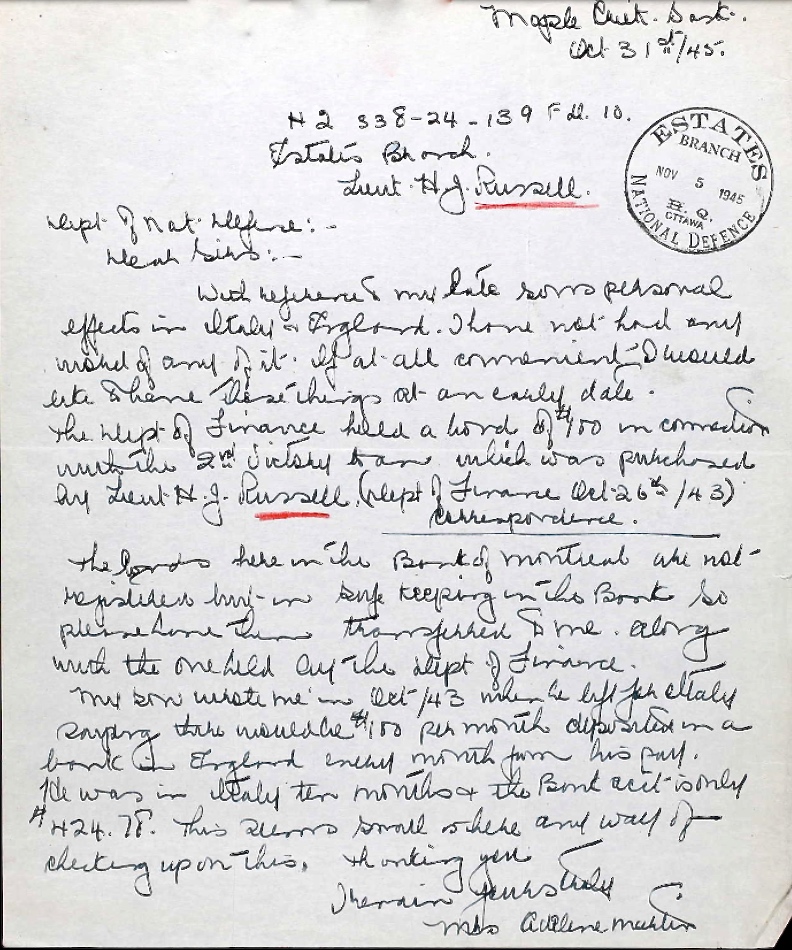 Maple Creek. Sask.
Oct 31st/45.
H Q 338-24-139 Fd. 10.
Estates Branch.
Lieut. H. J. Russell.
ESTATES
BRANCH
NOV 5 1945
H. Q.
OTTAWA
NATIONAL DEFENCE
Dept of Nat. Defense:-
Dear Sirs:-
With reference to my late sons personal
effects in Italy & England. I have not had any
word of any of it. If at all convenient I would
like to have these things at an early date.
The Dept of Finance held a bond of $100 in connection
with the 2nd Victory Loan which was purchased
by Lieut H. J. Russell. (Dept of Finance Oct 26th/43)
correspondence.
The bonds here in the Bank of Montreal are not
registered but in safe keeping in the Bank so
please have them transferred to me. along
with the one held by the Dept of Finance.
My son wrote me in Oct/43 when he left for Italy
saying there would be $100 per month deposited in a
bank in England every month from his pay.
He was in Italy ten months & the Bank acct is only
$424.78. This seems small is there any way of
checking up on this. Thanking you
I remain yours truly
Mrs Adelene Martin